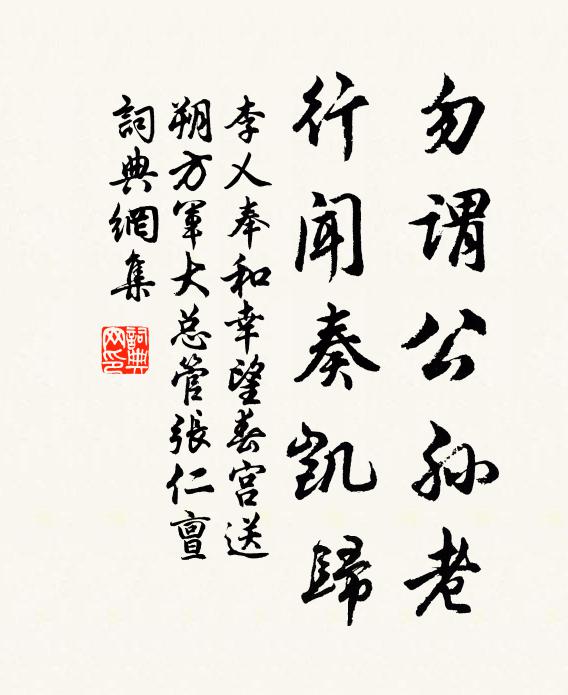 勿谓公孙老
行闻奏凯归
李乂奉和幸望春宫送
朔方军大总管张仁亶
詞典網集
詞典网印